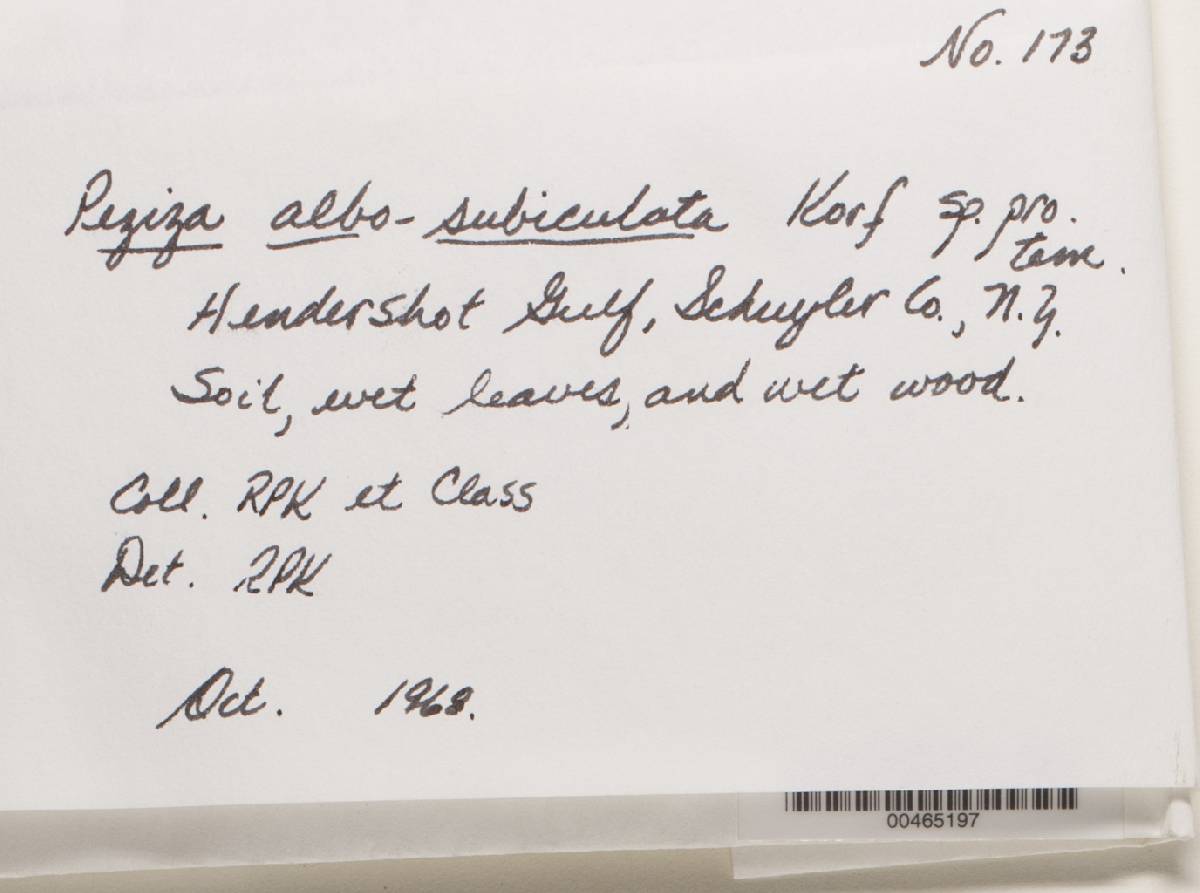 No. 173
Peziza albo-subiculata Korf sp. pro.
tem.
Hendershot Gulf, Schuyler Co., N.Y.
Soil, wet leaves, and wet wood.
Coll. RPK et Class
Det. RPK
Oct. 1968.
00465197